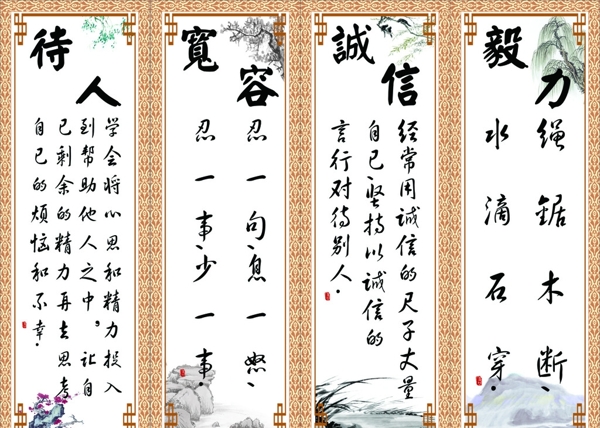 待人
学会将心思和精力投入
到帮助他人之中，让自
己剩余的精力再去思考
自己的烦恼和不幸.
寬容
忍一句、息一怒、
忍一事、少一事.
誠信
经常用诚信的尺子丈量
自己、坚持以诚信的
言行对待别人.
毅力
绳鋸木断、
水滴石穿.